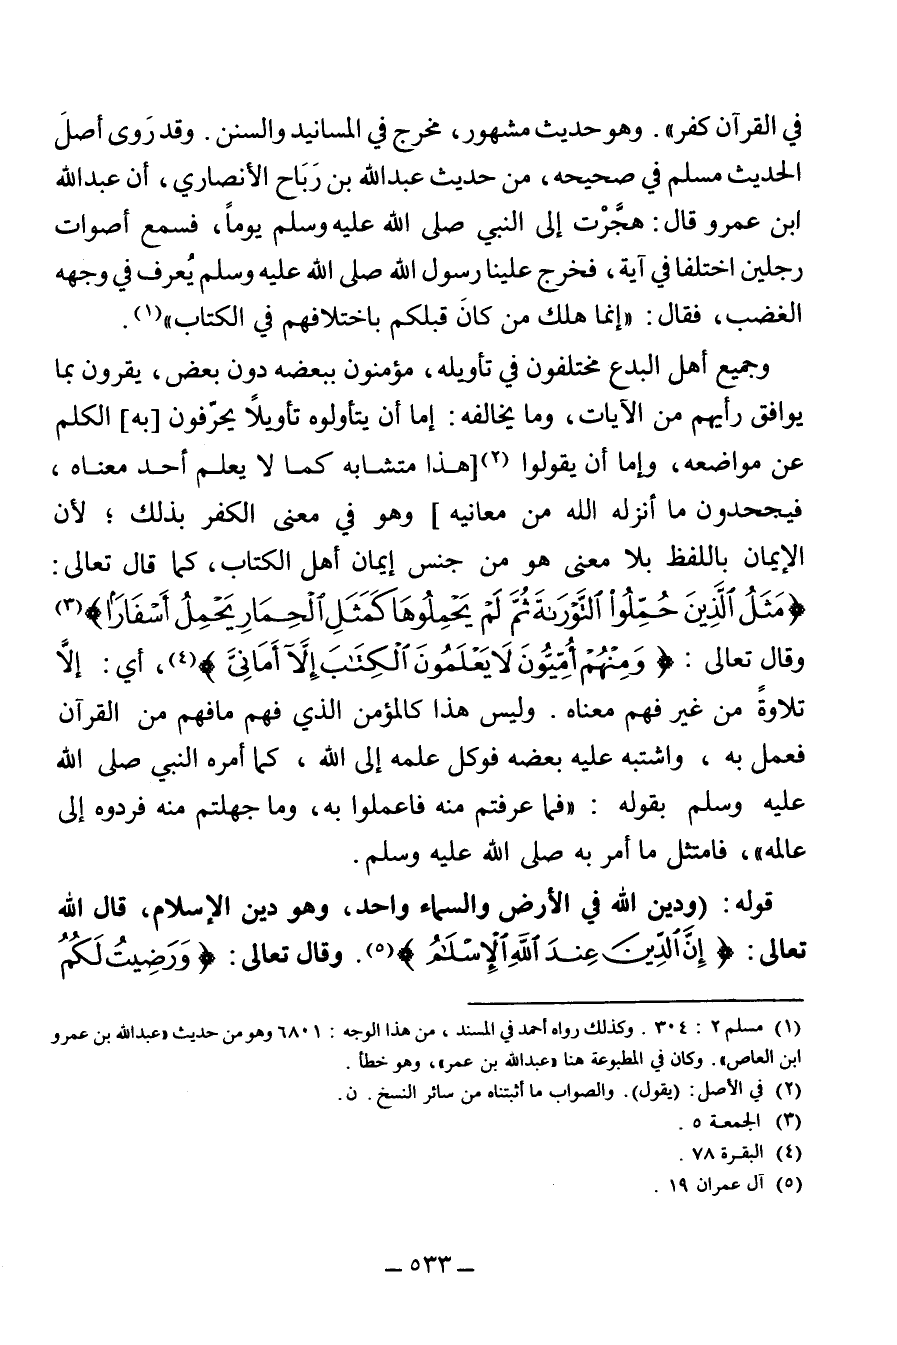 في القرآن كفر» . وهو حديث مشهور، مخرج في المسانيد والسنن . وقد رَوى أصلَ
الحديث مسلم في صحيحه، من حديث عبدالله بن رَبَاح الأنصاري، أن عبدالله
ابن عمرو قال: هجَّرْت إلى النبي صلى الله عليه وسلم يوماً، فسمع أصوات
رجلين اختلفا في آية، فخرج علينا رسول الله صلى الله عليه وسلم يُعرف في وجهه
الغضب، فقال: «إنما هلك من كانَ قبلكم باختلافهم في الكتاب»(١).
وجميع أهل البدع مختلفون في تأويله، مؤمنون ببعضه دون بعض، يقرون بما
يوافق رأيهم من الآيات، وما يخالفه: إما أن يتأولوه تأويلاً يحرّفون [به] الكلم
عن مواضعه، وإما أن يقولوا (٢)[هـذا متشـابه كمـا لا يعلـم أحـد معنـاه ،
فيجحدون ما أنزله الله من معانيه ] وهو في معنى الكفر بذلك ؛ لأن
الإيمان باللفظ بلا معنى هو من جنس إيمان أهل الكتاب، كما قال تعالى:
﴿مَثَلُ ٱلَّذِينَ حُمِّلُوا۟ ٱلتَّوْرَىٰةَ ثُمَّ لَمْ يَحْمِلُوهَا كَمَثَلِ ٱلْحِمَارِ يَحْمِلُ أَسْفَارًۢا﴾(٣)
وقال تعالى : ﴿ وَمِنْهُمْ أُمِّيُّونَ لَا يَعْلَمُونَ ٱلْكِتَٰبَ إِلَّآ أَمَانِىَّ ﴾(٤)، أي: إلَّا
تلاوةً من غير فهم معناه . وليس هذا كالمؤمن الذي فهم مافهم من القرآن
فعمل به ، واشتبه عليه بعضه فوكل علمه إلى الله ، كما أمره النبي صلى الله
عليه وسلم بقوله : «فما عرفتم منه فاعملوا به، وما جهلتم منه فردوه إلى
عالمه»، فامتثل ما أمر به صلى الله عليه وسلم.
قوله: (ودين الله في الأرض والسماء واحد، وهو دين الإسلام، قال الله
تعالى: ﴿ إِنَّ ٱلدِّينَ عِندَ ٱللَّهِ ٱلْإِسْلَٰمُ ﴾(٥). وقال تعالى: ﴿ وَرَضِيتُ لَكُمُ
(١) مسلم ٢ : ٣٠٤ . وكذلك رواه أحمد في المسند ، من هذا الوجه : ٦٨٠١ وهو من حديث «عبدالله بن عمرو
ابن العاص». وكان في المطبوعة هنا «عبدالله بن عمر»، وهو خطأ .
(٢) في الأصل: (يقول). والصواب ما أثبتناه من سائر النسخ . ن.
(٣) الجمعـة ٥ .
(٤) البقـرة ٧٨ .
(٥) آل عمران ١٩ .
ــ ٥٣٣ ــ